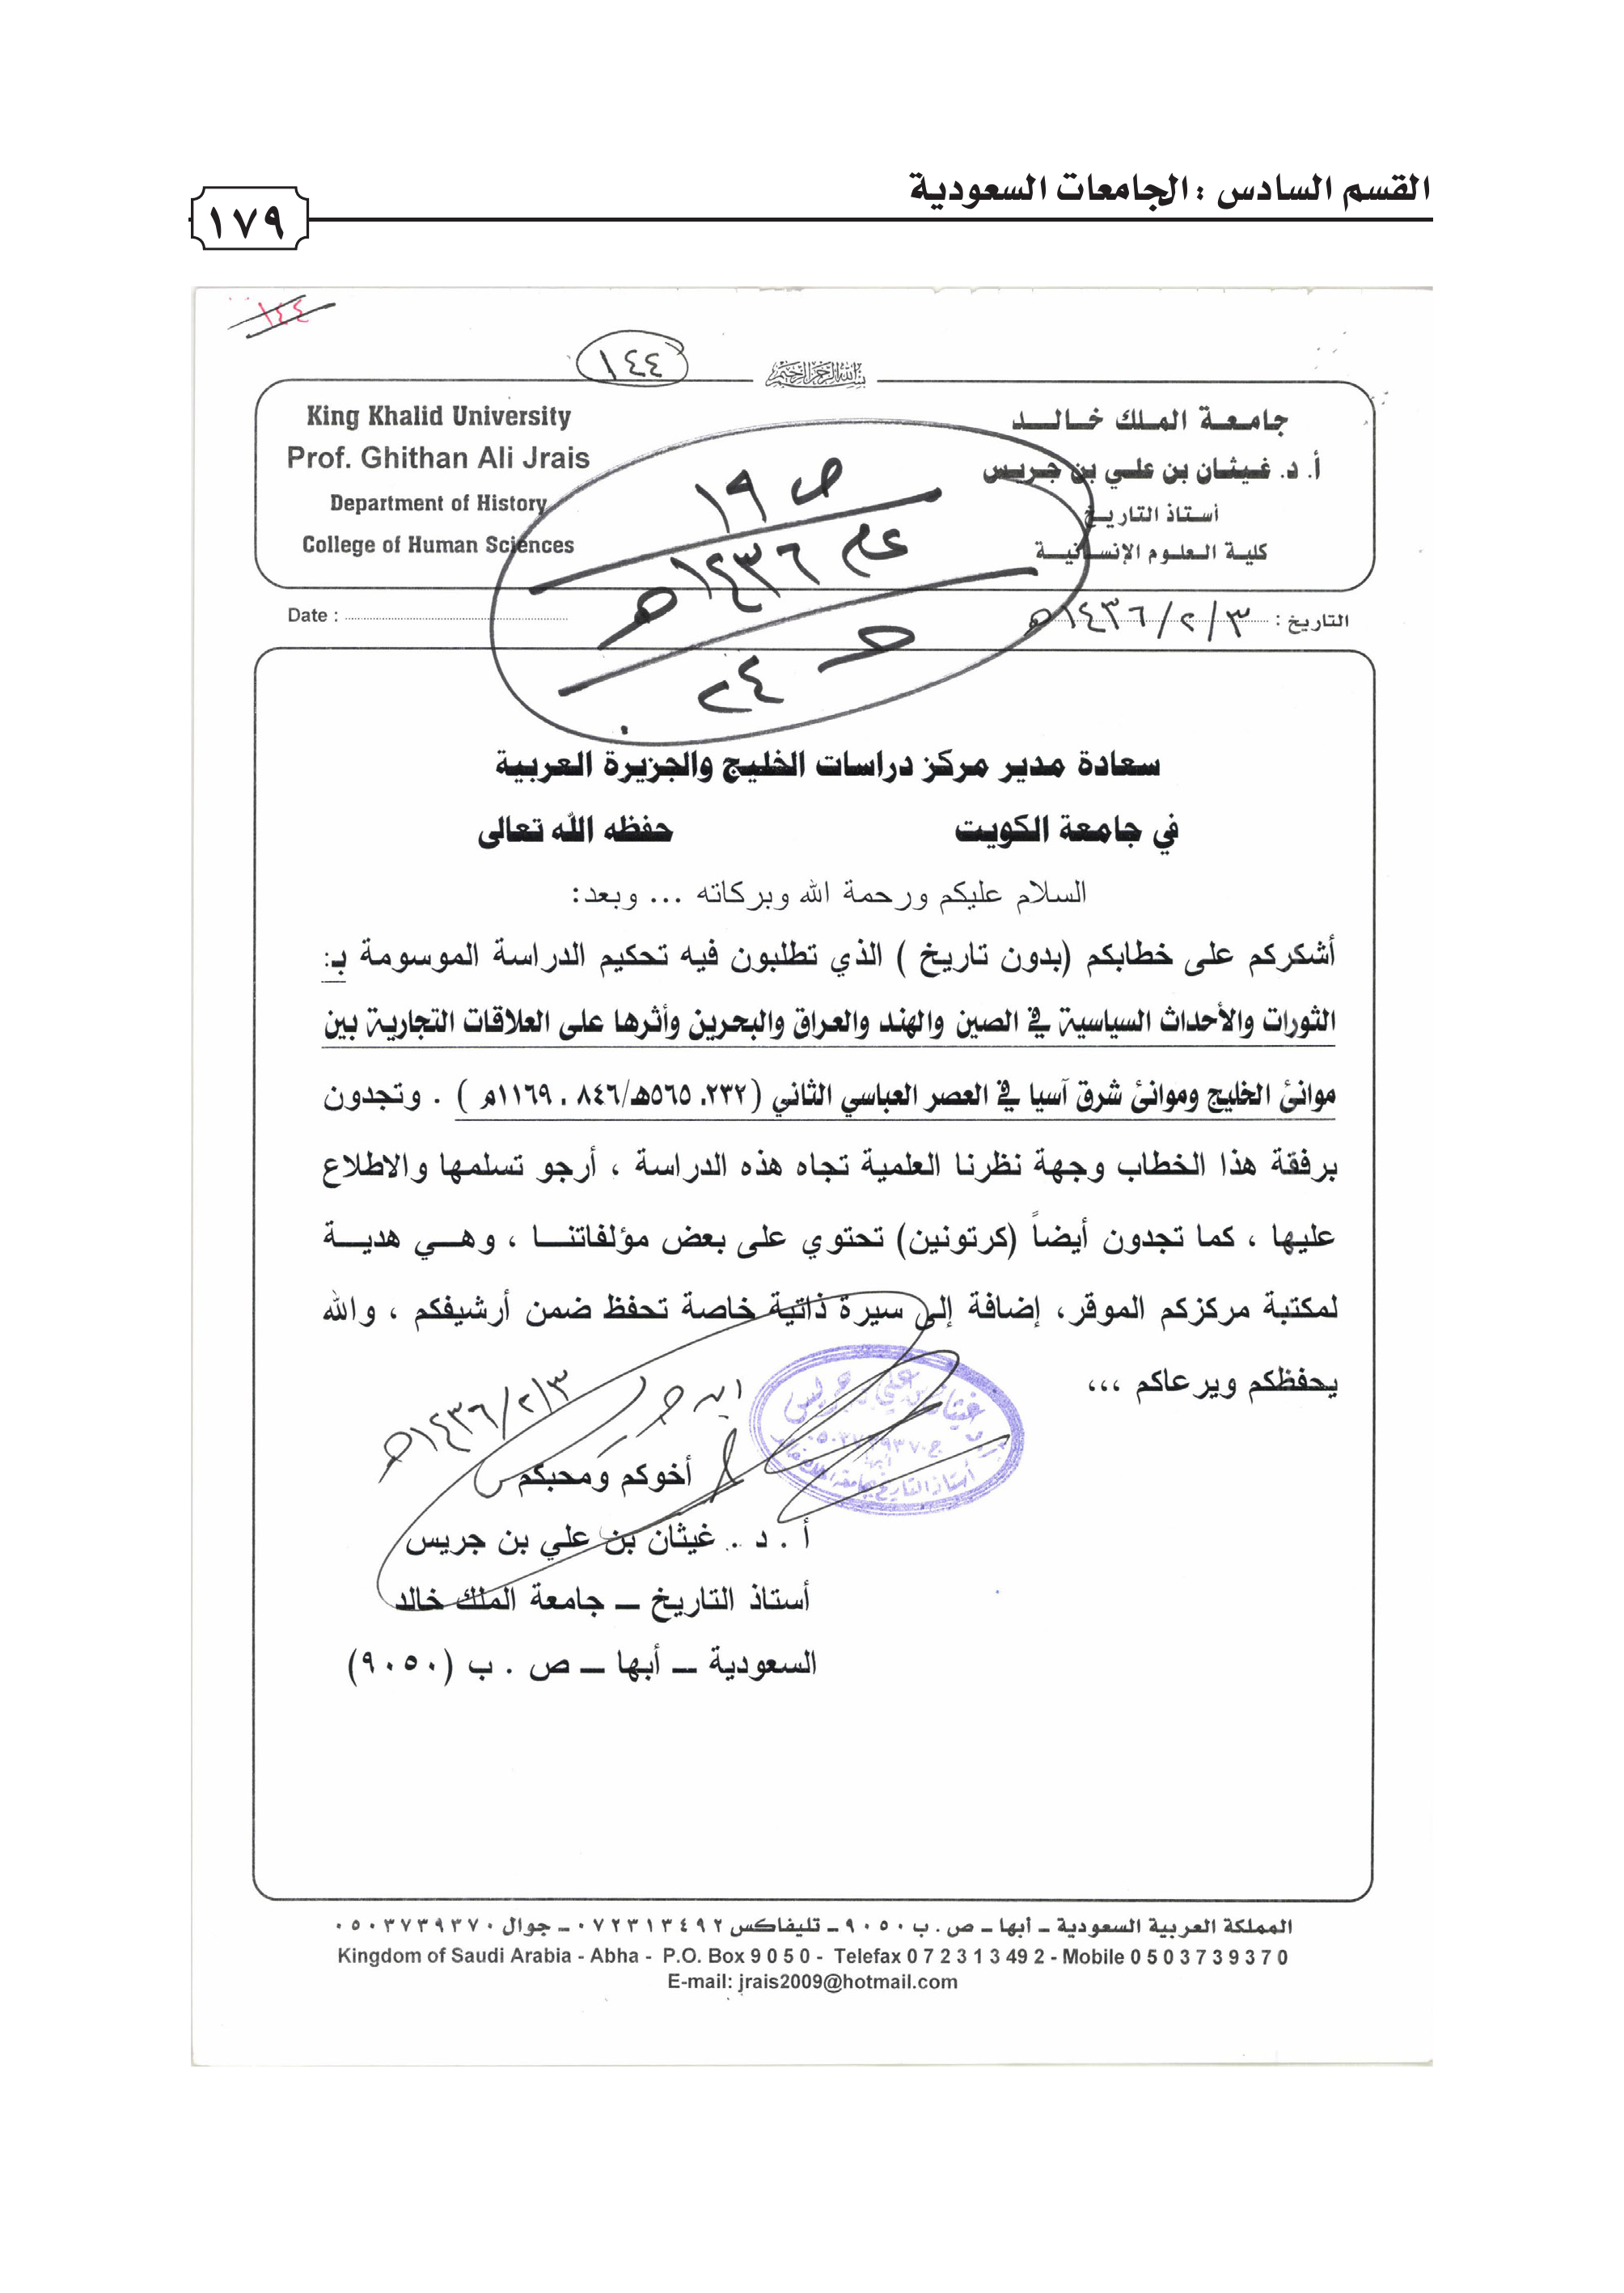 القسم السادس : الجامعات السعودية
١٧٩
١٤٤
١٤٤
بسم الله الرحمن الرحيم
King Khalid University
Prof. Ghithan Ali Jrais
Department of History
College of Human Sciences
جامعة الملك خالد
أ. د. غيثان بن علي بن جريس
أستاذ التاريخ
كلية العلوم الإنسانية
ص ١٩
عام ١٤٣٦هـ
ح
٢٤
Date :
التاريخ : ٣ / ٢ / ١٤٣٦هـ
سعادة مدير مركز دراسات الخليج والجزيرة العربية
في جامعة الكويت حفظه الله تعالى
السلام عليكم ورحمة الله وبركاته ... وبعد:
أشكركم على خطابكم (بدون تاريخ ) الذي تطلبون فيه تحكيم الدراسة الموسومة بـ:
الثورات والأحداث السياسية في الصين والهند والعراق والبحرين وأثرها على العلاقات التجارية بين
موانئ الخليج وموانئ شرق آسيا في العصر العباسي الثاني (٢٣٢. ٥٦٥هـ/٨٤٦ . ١١٦٩م ) . وتجدون
برفقة هذا الخطاب وجهة نظرنا العلمية تجاه هذه الدراسة ، أرجو تسلمها والاطلاع
عليها ، كما تجدون أيضاً (كرتونين) تحتوي على بعض مؤلفاتنا ، وهي هدية
لمكتبة مركزكم الموقر، إضافة إلى سيرة ذاتية خاصة تحفظ ضمن أرشيفكم ، والله
يحفظكم ويرعاكم ،،،
٣ / ٢ / ١٤٣٦هـ
أخوكم ومحبكم
أ . د . غيثان بن علي بن جريس
أستاذ التاريخ ــ جامعة الملك خالد
السعودية ــ أبها ــ ص . ب (٩٠٥٠)
المملكة العربية السعودية ـ أبها ـ ص . ب ٩٠٥٠ ـ تليفاكس ٠٧٢٣١٣٤٩٢ ـ جوال ٠٥٠٣٧٣٩٣٧٠
Kingdom of Saudi Arabia - Abha - P.O. Box 9 0 5 0 - Telefax 0 7 2 3 1 3 49 2 - Mobile 0 5 0 3 7 3 9 3 7 0
E-mail: jrais2009@hotmail.com